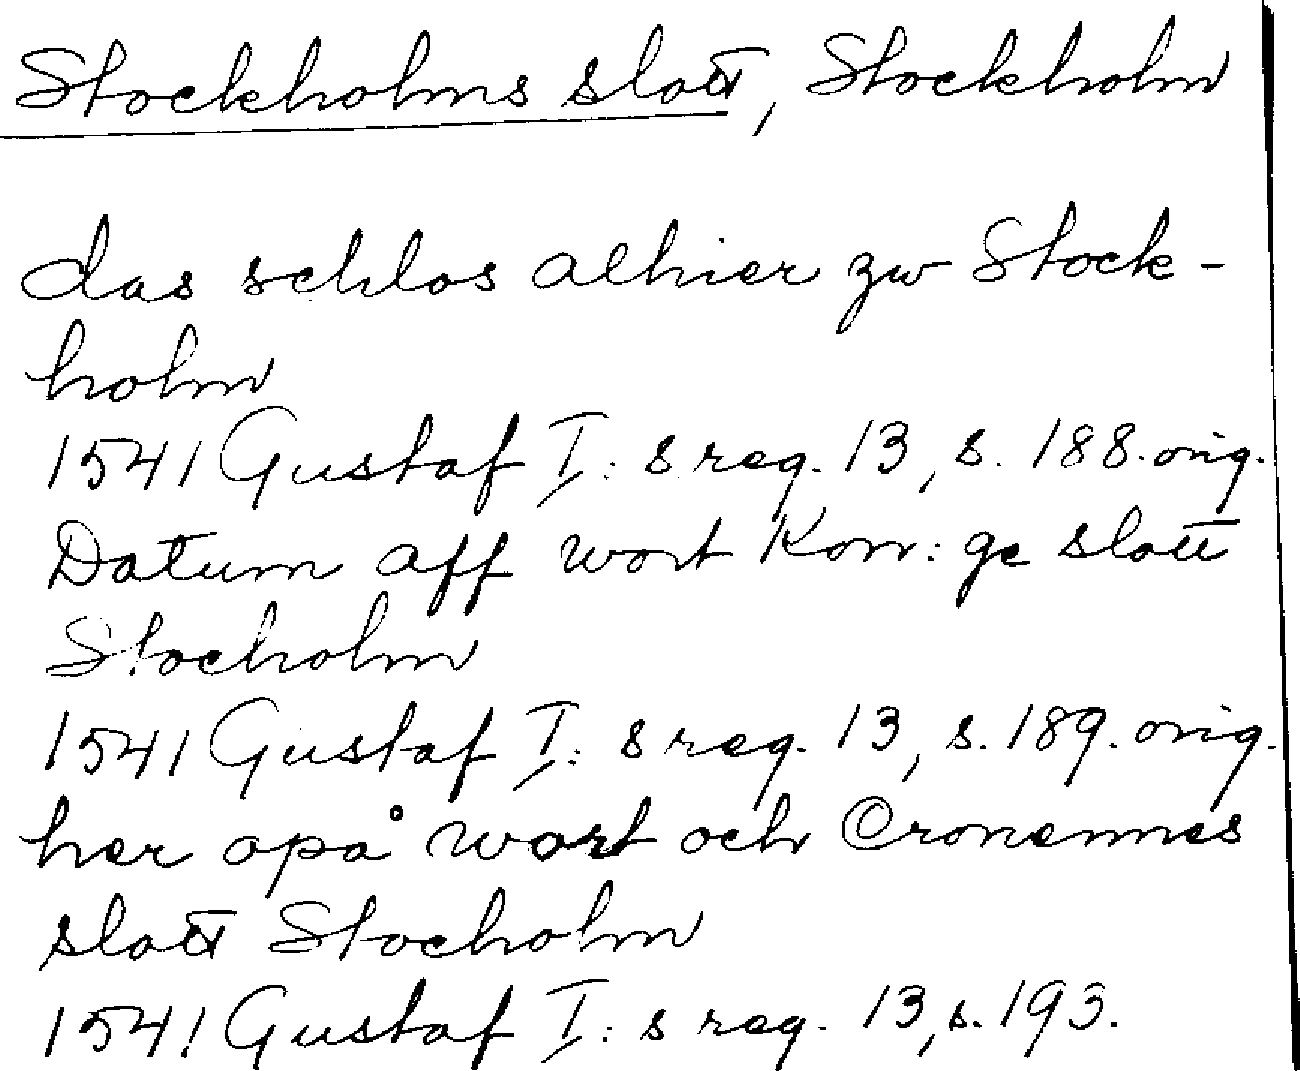 Stockholms slott, Stockholm
das schlos alhier zw Stock-
holm
1541 Gustaf I:s reg. 13, s. 188. orig.
Datum aff wort Kon: ge slott
Stocholm
1541 Gustaf I:s reg. 13, s. 189. orig.
her opå wort och Cronennes
slott Stocholm
1541 Gustaf I:s reg. 13, s. 193.